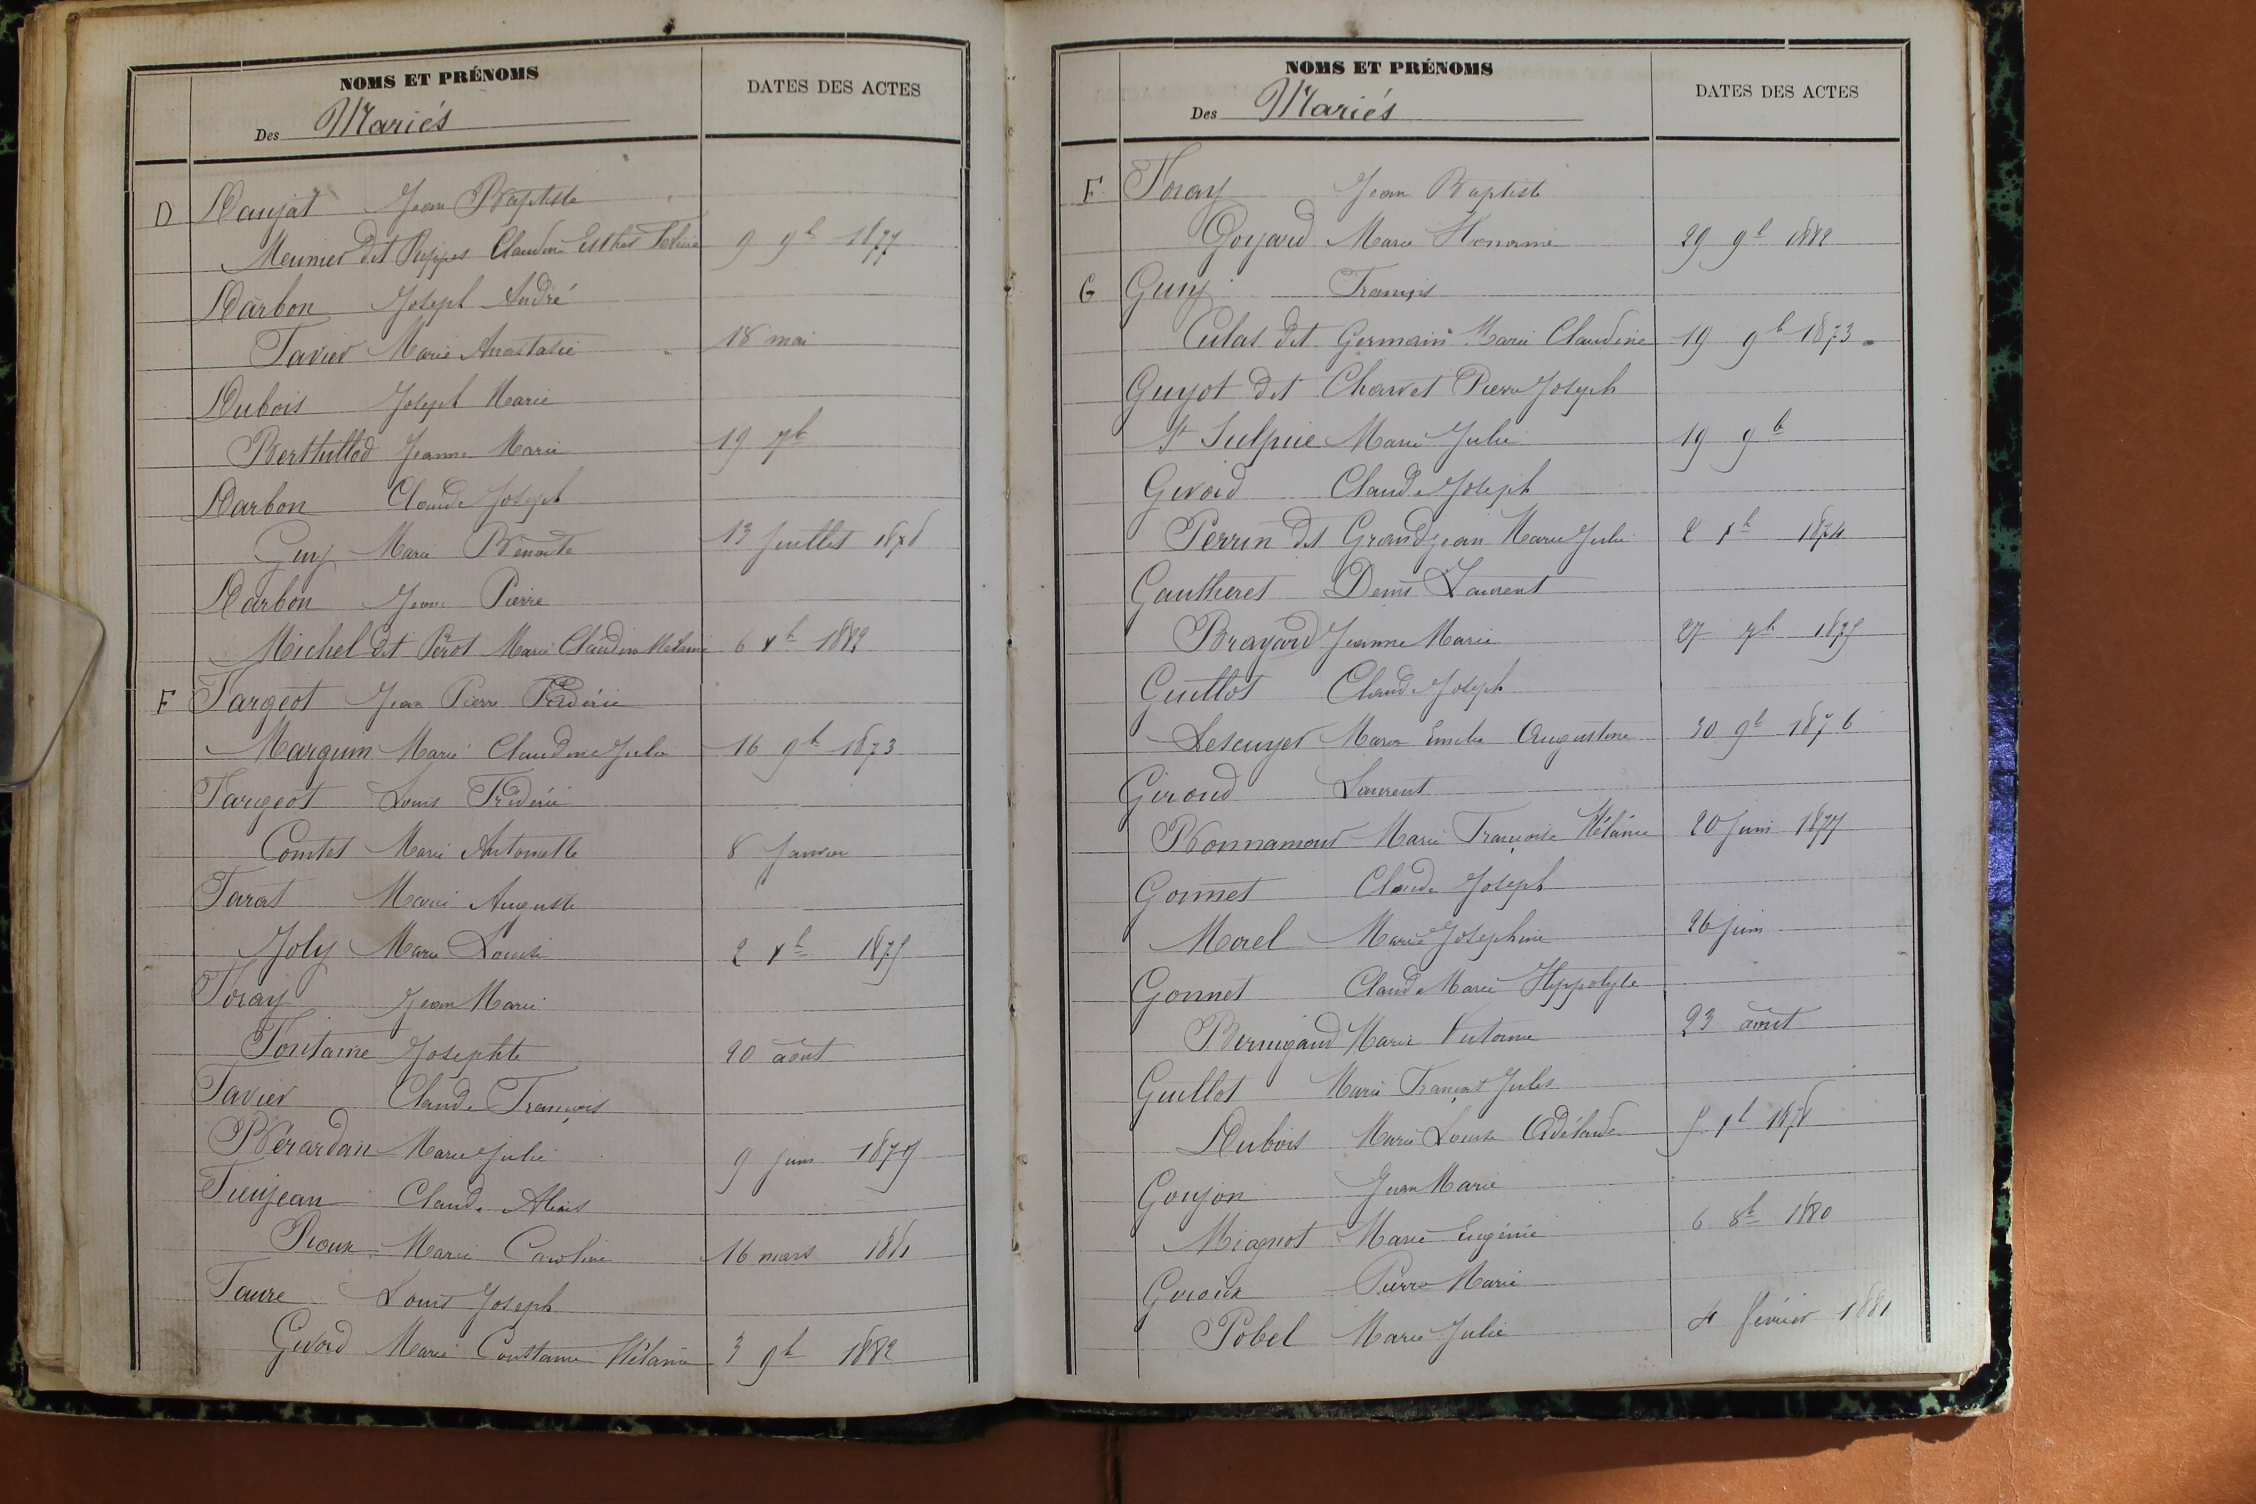 NOMS ET PRÉNOMS
DATES DES ACTES
Des Mariés
D Daujat Jean Baptiste
Meunier dit Pieppes Claudine Esther 9 9b 1877
Darbon Joseph André
Favier Marie Anastasie 18 mai
Dubois Joseph Marie
Berthillod Jeanne Marie 19 7b
Darbon Claude Joseph
Guy Marie Benoite 13 Juillet 1878
Darbon Jean Pierre
Michel dit Perot Marie Claudine Mélanie 6 Xb 1882
F Fargeot Jean Pierre Frédéric
Marguin Marie Claudine Julie 16 9b 1873
Fargeot Louis Frédéric
Comtet Marie Antoinette 8 Janvier
Farat Marie Auguste
Joly Marie Louise 2 Xb 1875
Foray Jean Marie
Fontaine Josephte 20 août
Favier Claude François
Berardan Marie Julie 9 Juin 1879
Fieujean Claude Alexis
Pioux Marie Caroline 16 mars 1881
Faure Louis Joseph
Givord Marie Constance Mélanie 3 9b 1882
NOMS ET PRÉNOMS
DATES DES ACTES
Des Mariés
F Foray Jean Baptiste
Goyard Marie Honorine 29 9b 1882
G Guy François
Culas dit Germain Marie Claudine 19 9b 1873
Guyot dit Charvet Pierre Joseph
St Sulpice Marie Julie 19 9b
Givord Claude Joseph
Perrin dit Grandjean Marie Julie 2 Xb 1874
Gautheret Denis Laurent
Brayard Jeanne Marie 27 7b 1875
Guillot Claude Joseph
Lescuyer Marie Emelie Augustine 30 9b 1876
Giroud Laurent
Bonnamour Marie Françoise Mélanie 20 Juin 1877
Gonnet Claude Joseph
Morel Marie Josephine 26 juin
Gonnet Claude Marie Hyppolyte
Bernigaud Marie Victorine 23 août
Guillot Marie François Jules
Dubois Marie Louise Adélaïde 5 Xb 1878
Goujon Jean Marie
Miagnot Marie Eugénie 6 8b 1880
Giroux Pierre Marie
Pobel Marie Julie 4 février 1881